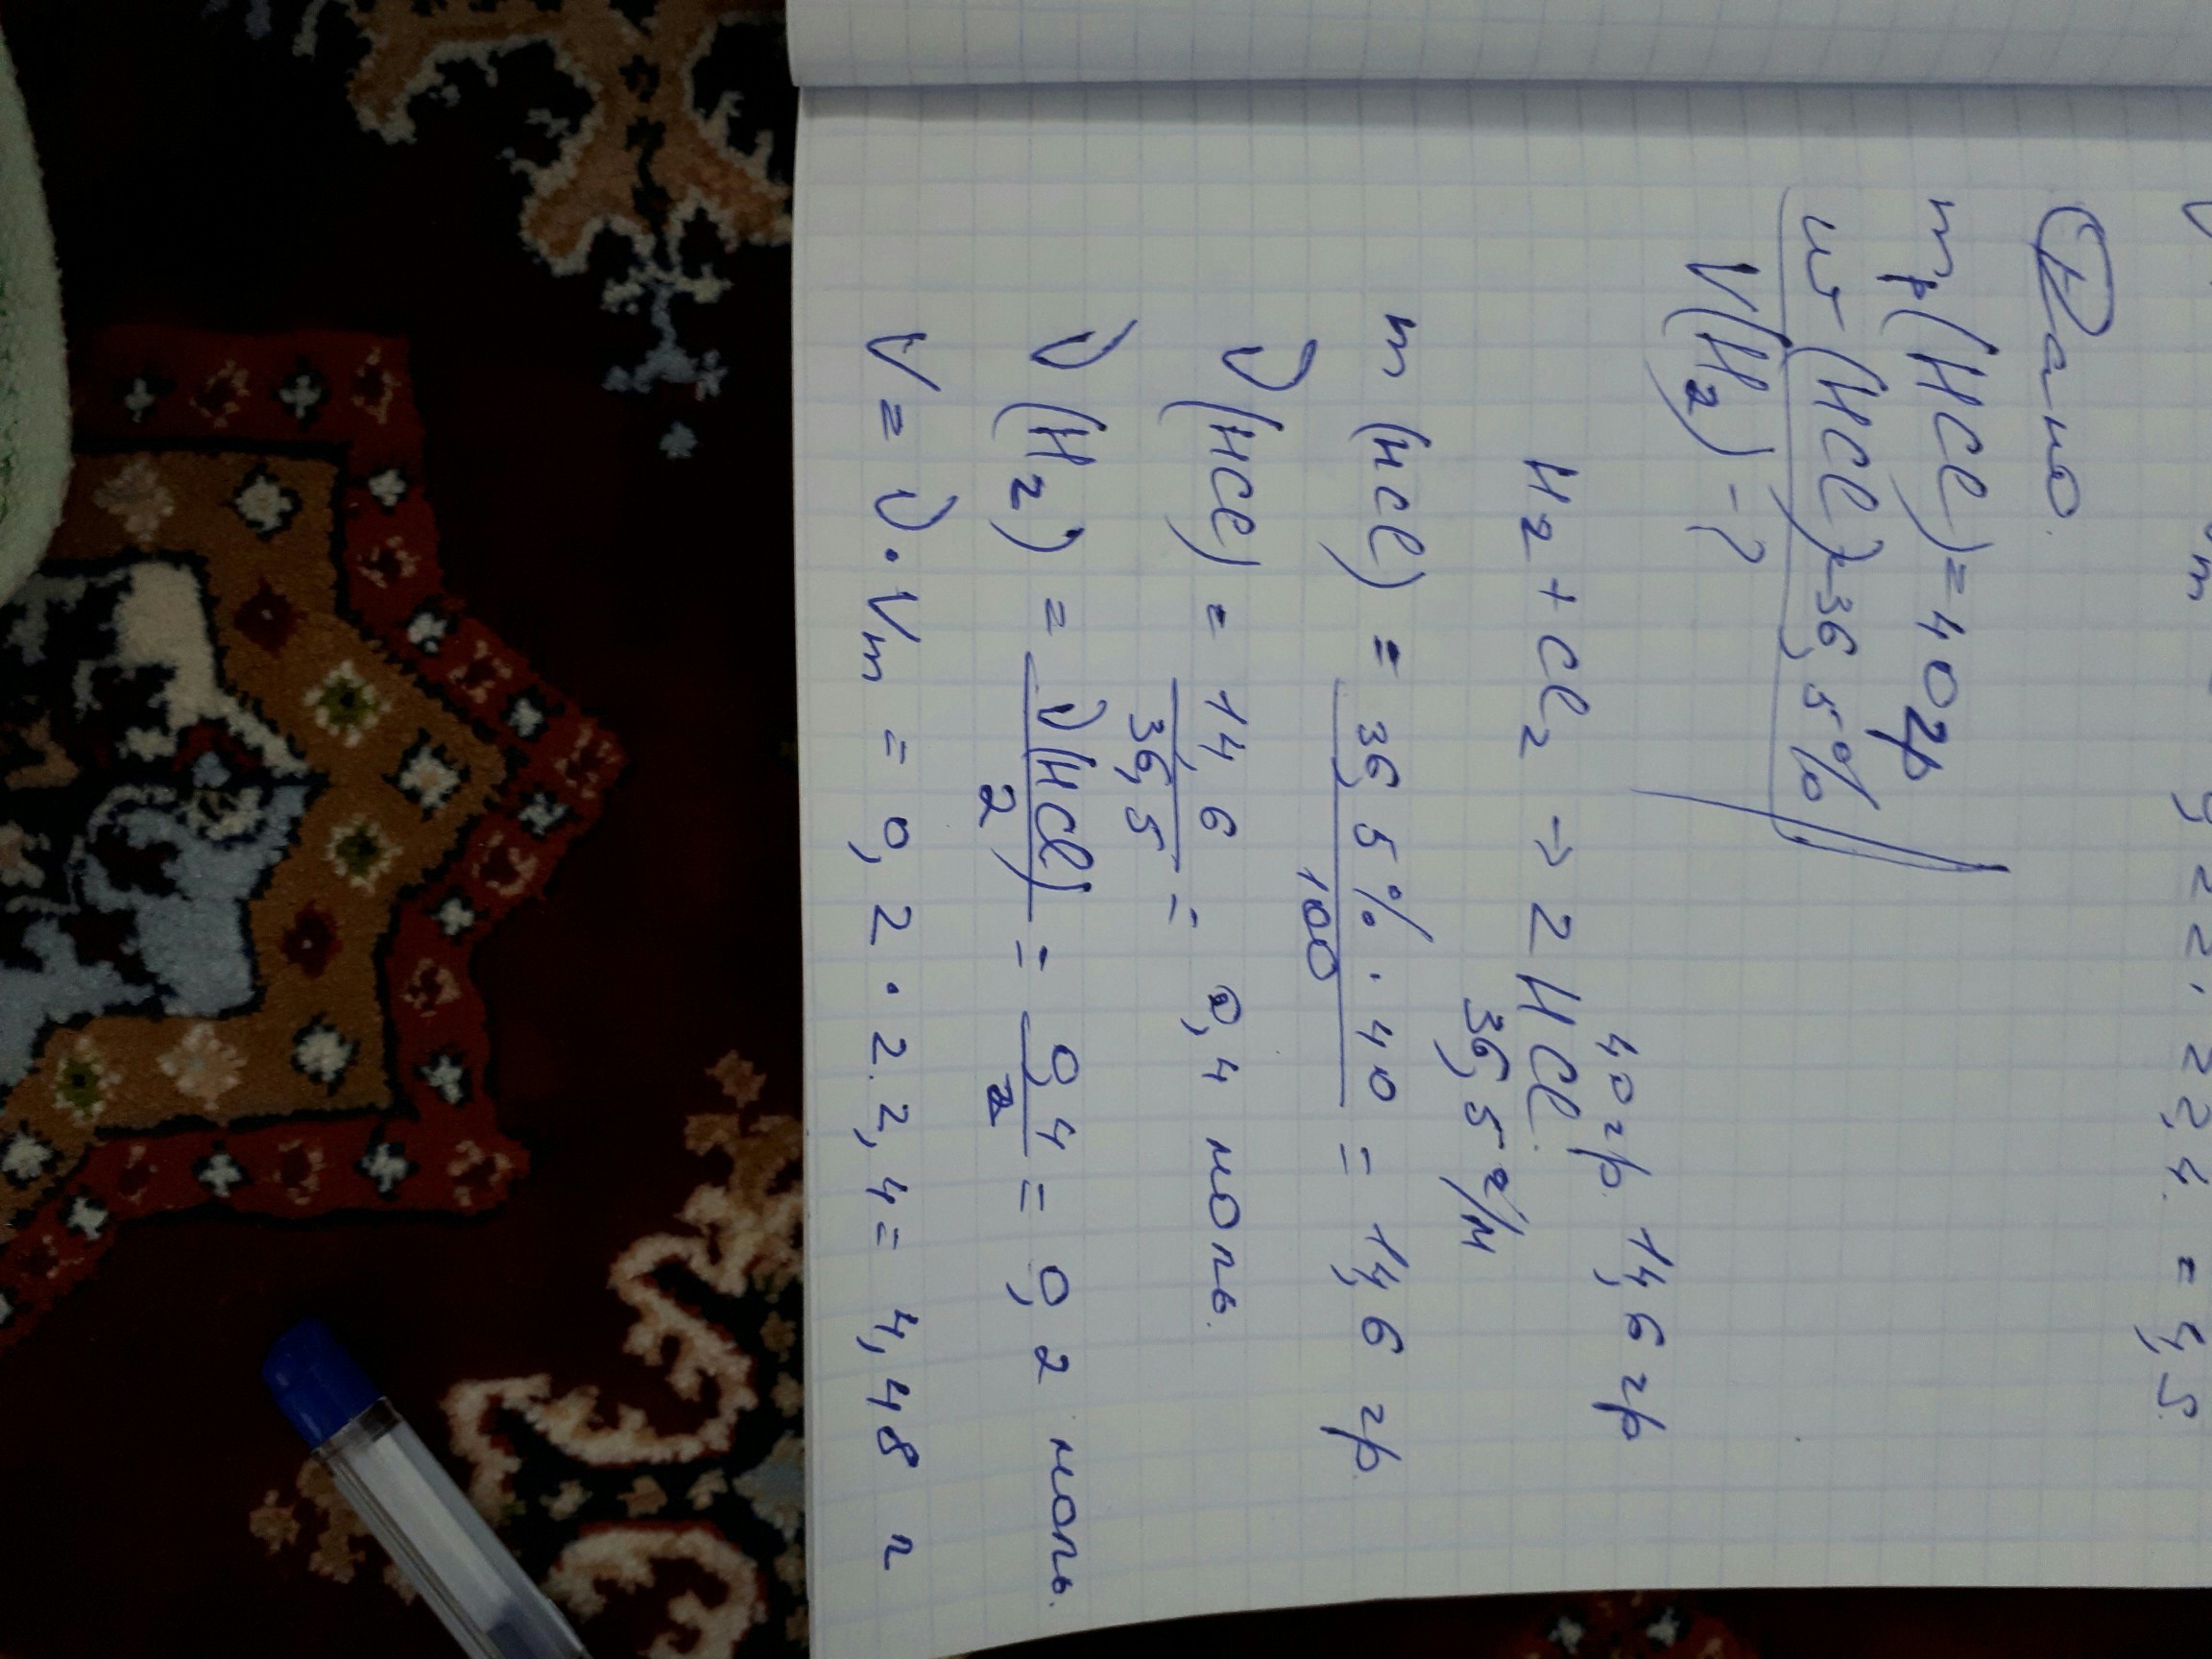 = 22,4 = 4,5
Дано.
mр(HCl) = 40гр
ω (HCl) - 36,5%
V(H2) - ?
40гр. 14,6 гр
H2 + Cl2 → 2HCl.
36,5 г/м
m (HCl) = 36,5% · 40 / 100 = 14,6 гр
ν (HCl) = 14,6 / 36,5 = 0,4 моль.
ν (H2) = ν(HCl) / 2 = 0,4 / 2 = 0,2 моль.
V = ν · Vm = 0,2 · 22,4 = 4,48 л